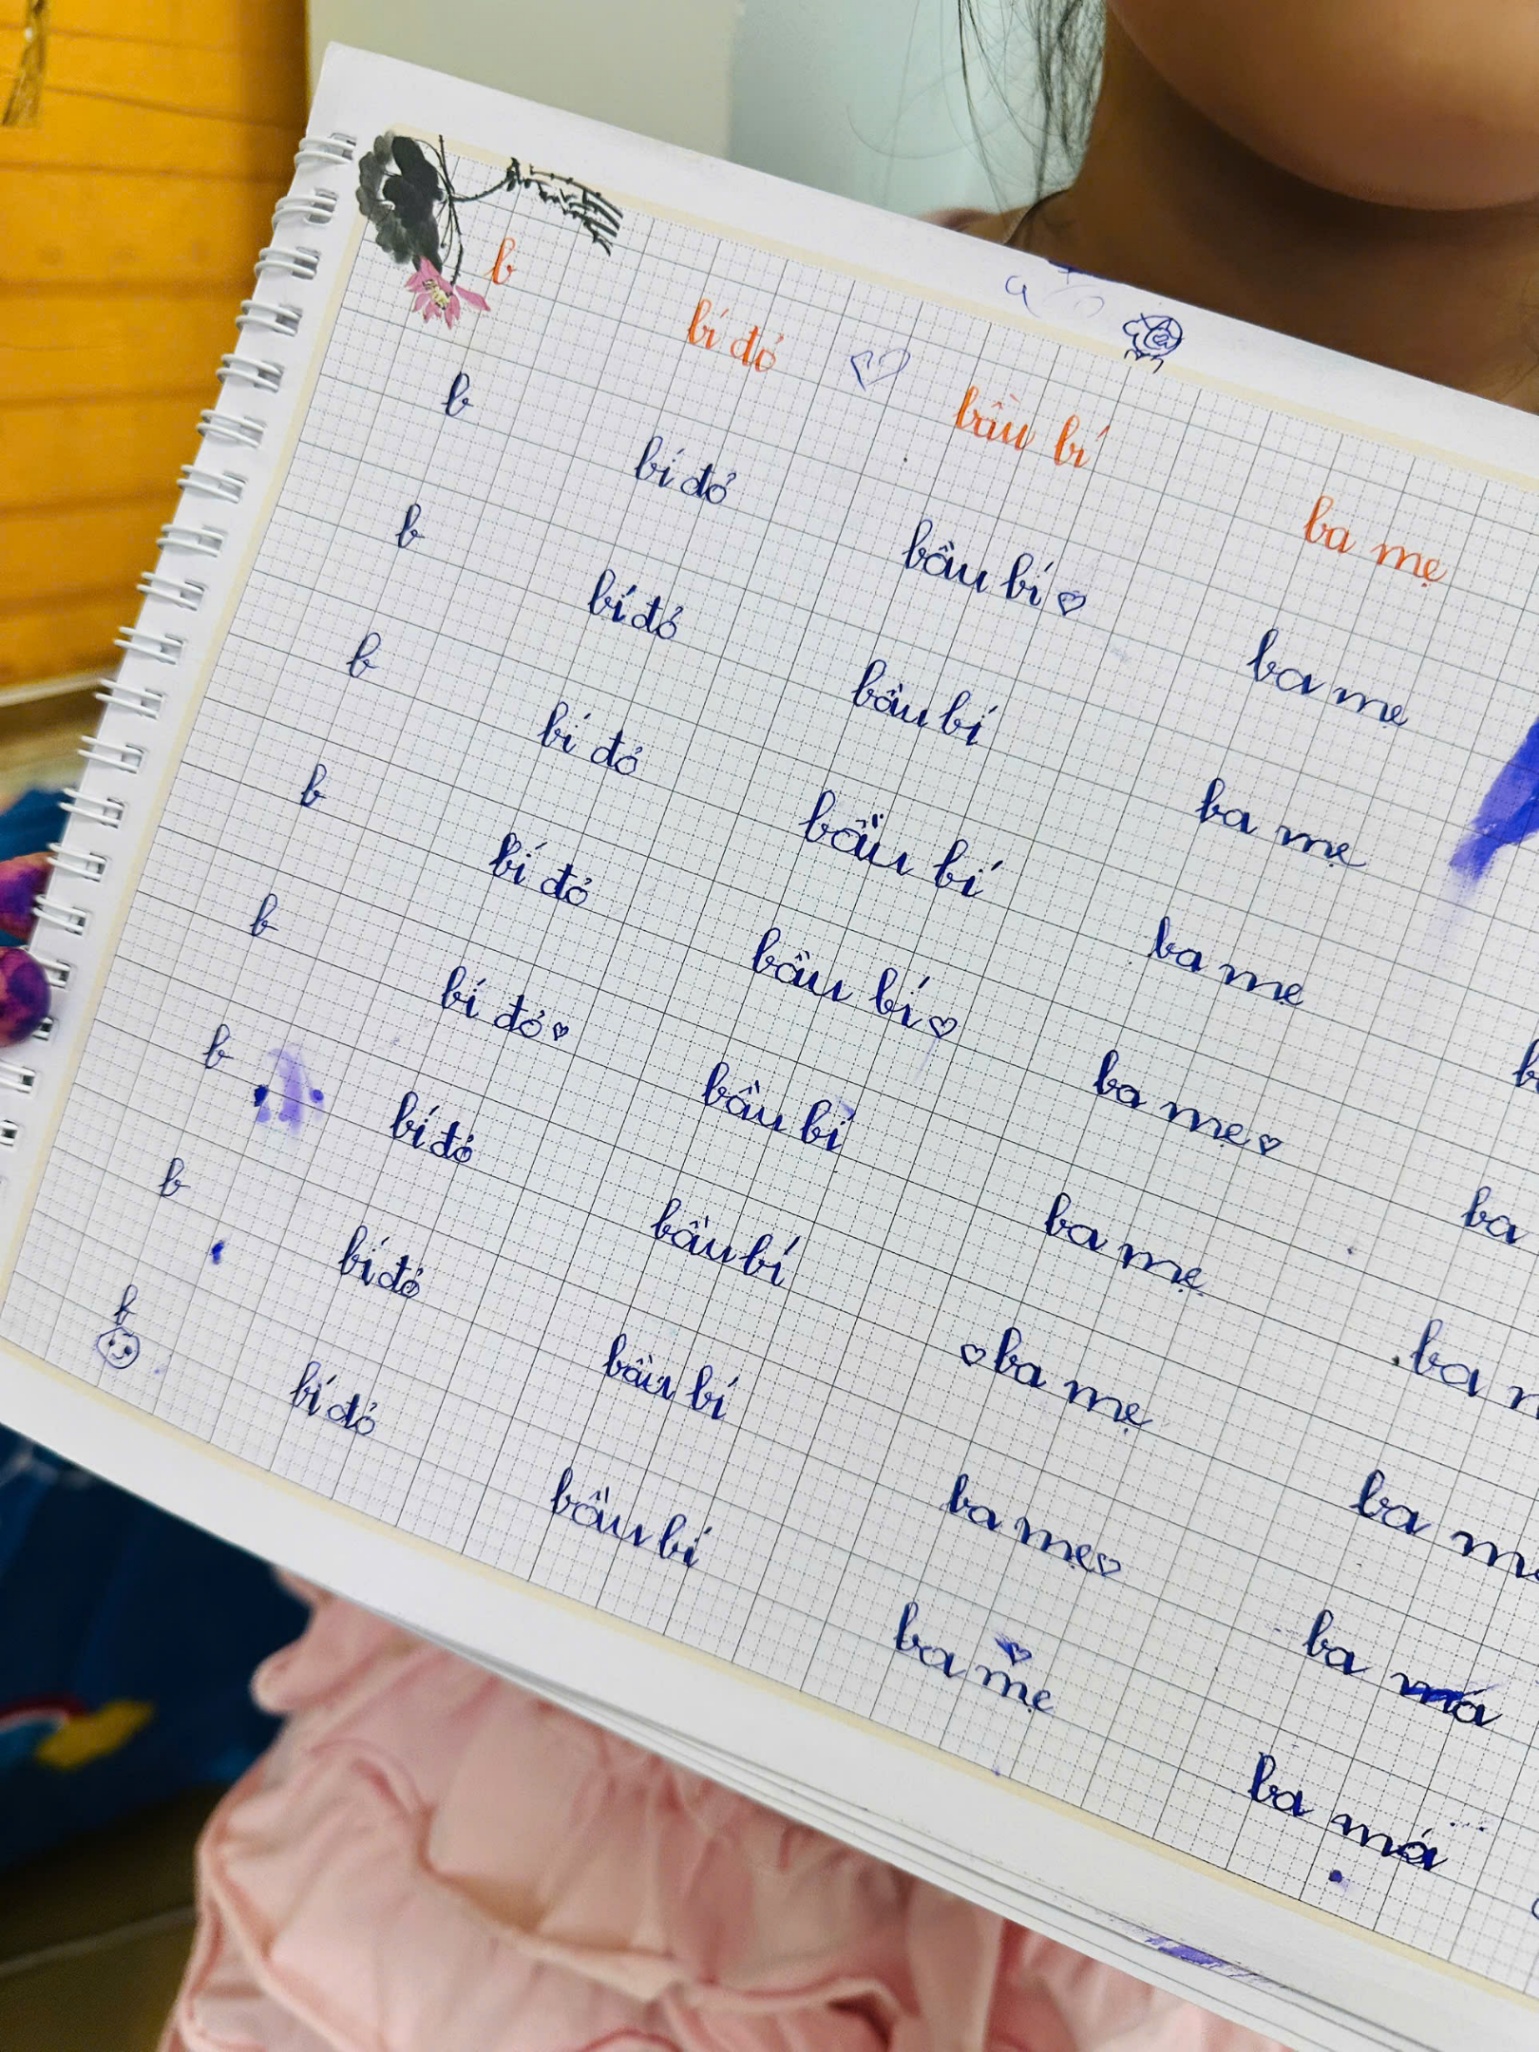 b bí đỏ bầu bí ba mẹ
b bí đỏ bầu bí ba mẹ
b bí đỏ bầu bí ba mẹ
b bí đỏ bầu bí ba me
b bí đỏ bầu bí ba mẹ ba
b bí đỏ bầu bí ba mẹ ba
b bí đỏ bầu bí ba mẹ ba
b bí đỏ bầu bí ba mẹ ba má
b bí đỏ bầu bí ba mẹ ba má